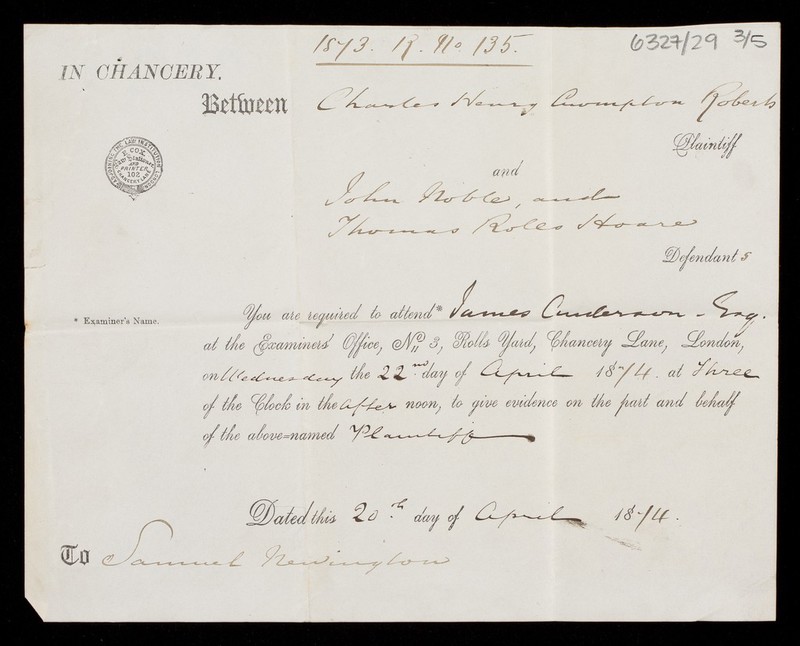 1873. R. No. 135.
6327/29 3/5
IN CHANCERY.
Between Charles Henry Crompton Roberts
Plaintiff
and
John Noble, and
Thomas Rolls Hoare
Defendants
* Examiner's Name.
You are required to attend* James Anderson - Esq.
at the Examiners' Office, No. 3, Rolls Yard, Chancery Lane, London,
on Wednesday the 22nd day of April 1874. at Three
of the Clock in the After noon, to give evidence on the part and behalf
of the above=named Plaintiff
Dated this 20th day of April 1874.
To Samuel Newington
ADJOINING THE LAW INSTITUTION
E. COX,
Law Stationer
AND
PRINTER
102
CHANCERY LANE
LONDON